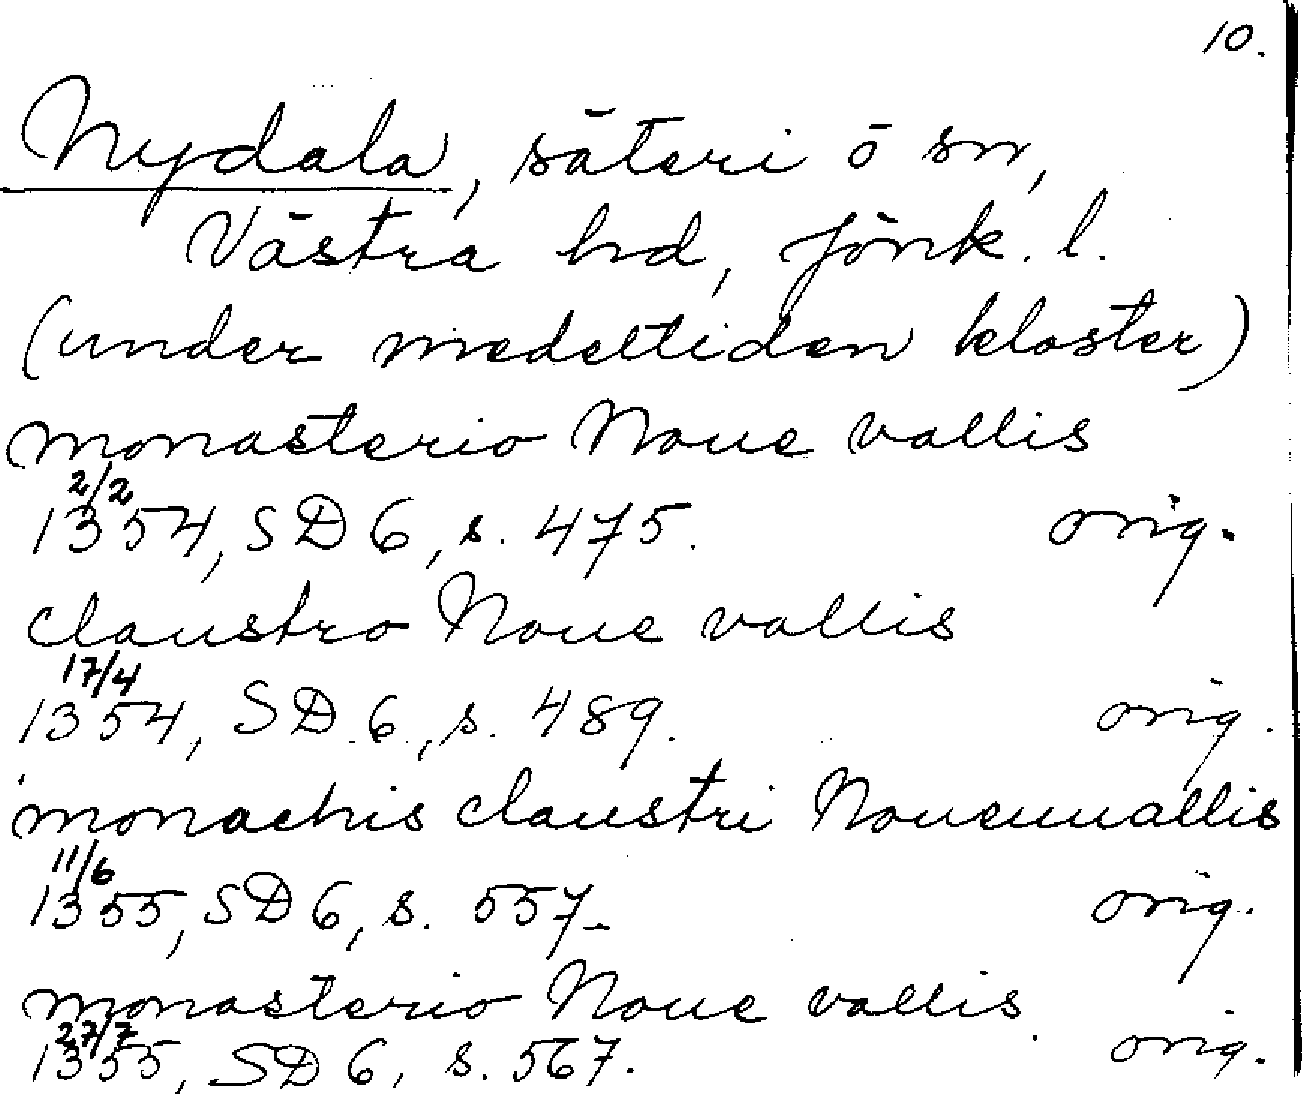 10.
Nydala, säteri ō sn,
Västra hd, Jönk. l.
(under medeltiden kloster)
monasterio Noue vallis
2/2
1354, SD 6, s. 475. orig.
claustro Noue vallis
17/4
1354, SD 6, s. 489. orig.
monachis claustriНоueuuallis
11/6
1355, SD 6, s. 557. orig.
monasterio Noue vallis
27/7
1355, SD 6, s. 567. orig.